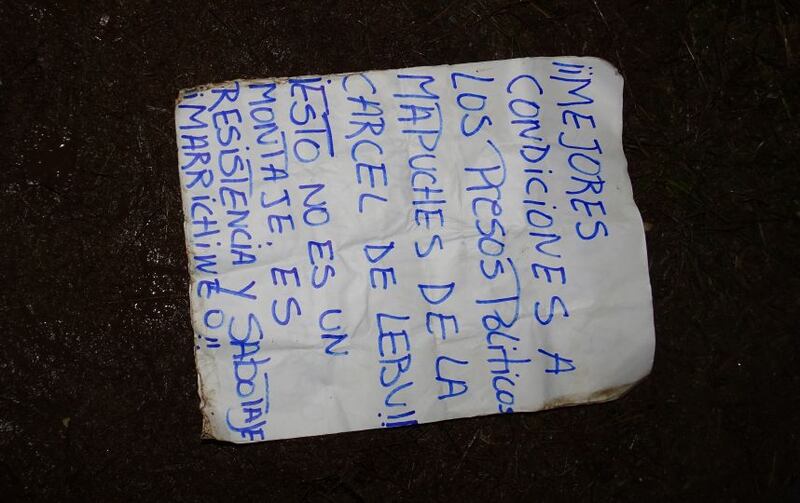 ¡¡MEJORES
CONDICIONES A
LOS PRESOS POLITICOS
MAPUCHES DE LA
CARCEL DE LEBU!!
¡ESTO NO ES UN
MONTAJE; ES
RESISTENCIA Y SABOTAJE
¡MARRICHIWEO!!